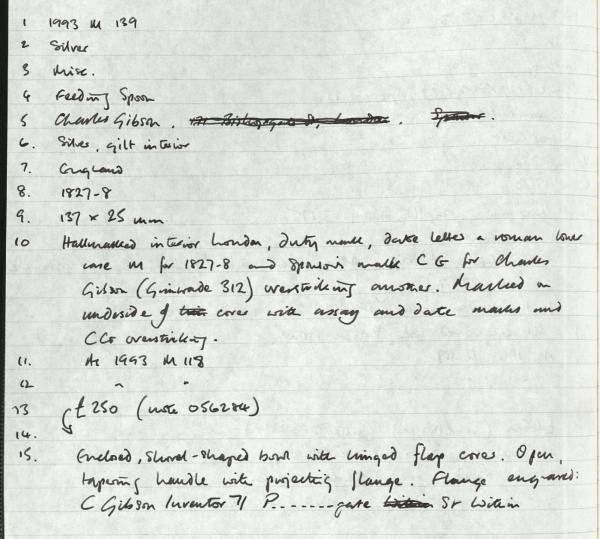 1 1993 M 139
2 Silver
3 Misc.
4 Feeding Spoon
5 Charles Gibson. 71 Bishopsgate St, London. Spoon.
6. Silver, gilt interior
7. England
8. 1827-8
9. 137 x 25 mm
10 Hallmarked interior London, duty mark, date letter a roman lower
case m for 1827-8 and sponsor's mark C G for Charles
Gibson (Grimwade 312) overstriking another. Marked on
underside of cover with assay and date marks and
CG overstriking.
11. As 1993 M 118
12 " "
13 £250 (note 056284)
14.
15. Enclosed, shovel-shaped bowl with hinged flap cover. Open,
tapering handle with projecting flange. Flange engraved:
C Gibson Inventor 71 P.......gate St Within